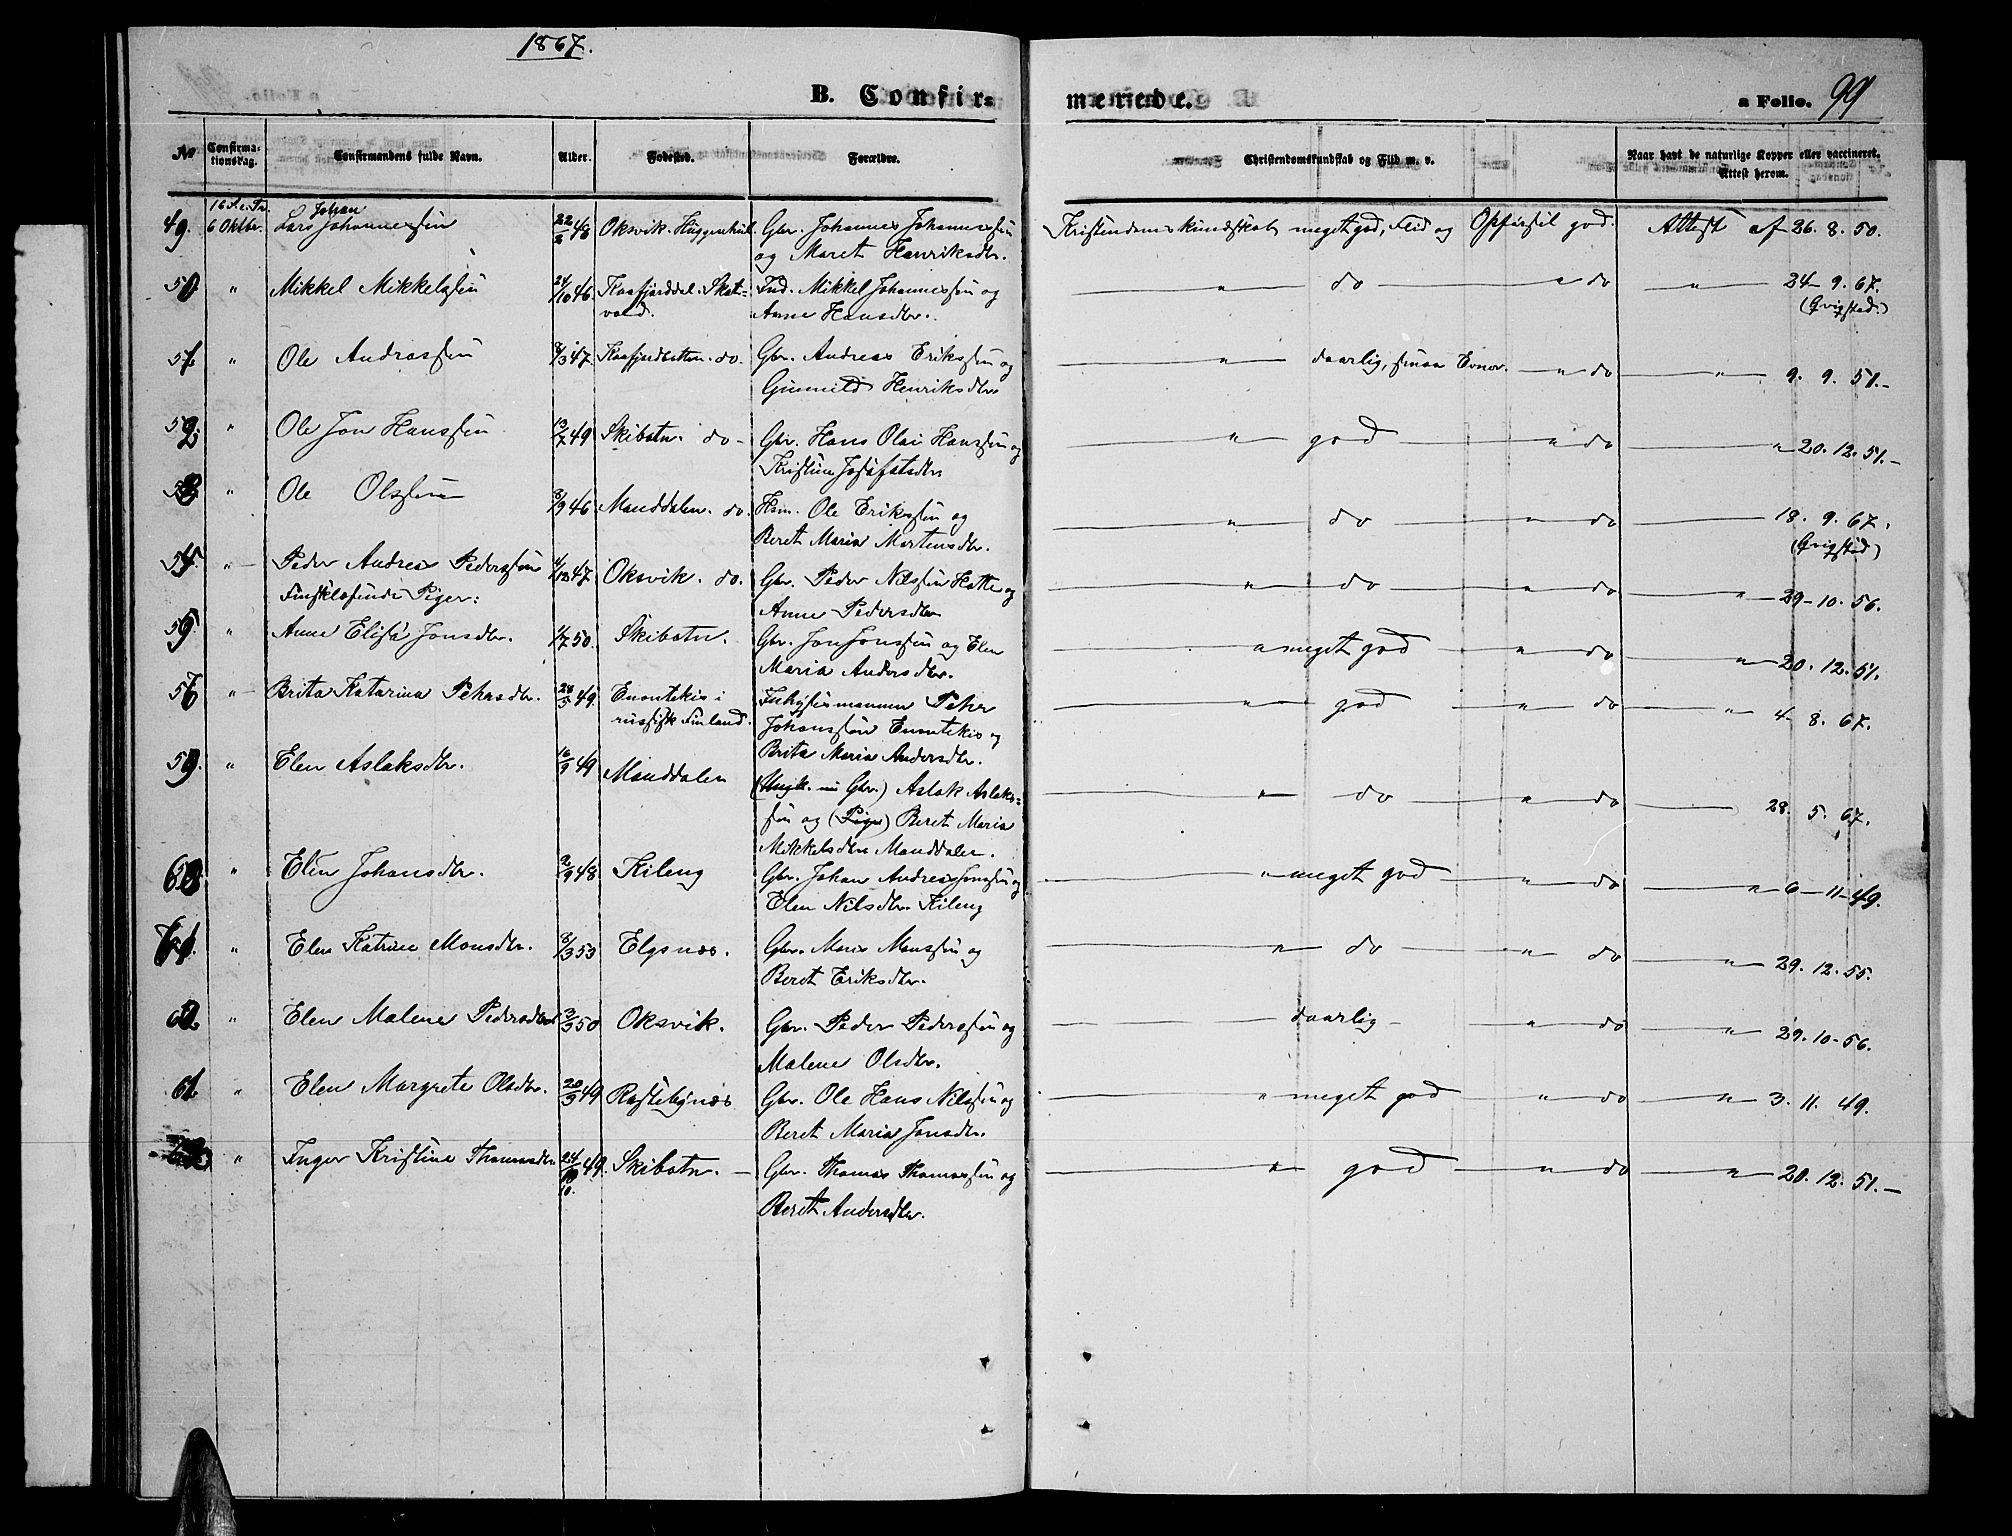 1867.
B. Confir=
merede.
a Folio. 99
No
Confirma-
tionsdag.
Confirmandens fulde Navn.
Alder.
Fødested.
Forældre.
Christendomskundskab og Flid m. v.
Naar havt de naturlige Kopper eller vaccineret.
Attest herom.
49. 16 S. e. Tr. Johan
6 Oktbr. Lars Johannessøn 22/2 48 Oksvik. Gbr. Johannes Johannessøn Kristendomskundskab meget god, Flid og Opførsel god. Attest af 26. 8. 50.
og Maret Henriksdtr.
50 " Mikkel Mikkelsøn 24/10 46. Kaafjorddal. Skat- Ind. Mikkel Johannessøn og " do " do " 24 - 9. 67.
vold. Anne Hansdtr. (Qvigstad.)
51 " Ole Andreassøn 8/3 47. Kaafjordbotten. do. Gbr. Andreas Erikssøn og " daarlig, smaa Evner. " do " 9. 9. 51.-
Gunnild Henriksdtr.
52. " Ole Jon Hanssøn 13/7 49 Skibotn. do - Gbr. Hans Olai Hanssøn og " god " do " 20. 12. 51.-
Kristine Josafatsdtr.
53 " Ole Olssøn 8/9 46 Manddalen. do. Hsm. Ole Erikssøn og " do " do 18. 9. 67.
Beret Maria Mortensdtr. (Qvigstad)
54. " Peder Andreas Pederssøn 1/12 47 Oksvik. do. Gbr. Peder Nilssøn Hatte og " do " do " 29-10. 56.
Finsklæsende Piger: Anne Pedersdtr
55. " Anne Elisa Jonsdtr. 1/7 50. Skibotn. Gbr. Jon Jonssøn og Elen " meget god " do " 20. 12. 51.
Maria Andersdtr.
" Brita Katarina Pehrsdtr. 28/5 49. Enontekis i Pehr " god " do " 4. 8. 67.
russisk Finland. Johanssøn Enontekis og
Brita Maria Andersdtr.
59. " Elen Aslaksdtr. 16/9 49 Manddalen (Ungk. nu Gbr.) Aslak Aslaks= " do " do 28. 5. 67.
søn og (Pige) Beret Maria
Mikkelsdtr. Manddalen.
" Elen Johansdtr. 2/9 48 Kileng Gbr. Johan Andreas Jonssøn og " meget god " do " 6 - 11 - 49.
Elen Nilsdtr. Kileng
" Elen Katrine Monsdtr. 8/3 53 Elgsnæs. Gbr. Mons Monssøn og " do " do " 29. 12. 55.
Beret Eriksdtr.
" Elen Malene Pedersdtr 3/3 50 Oksvik. Gbr. Peder Pederssøn og daarlig - " do " 29. 10 - 56.
Malene Olsdtr.
61 " Elen Margrete Olsdtr. 20/3 49 Rastebynæs Gbr. Ole Hans Nilssøn og " meget god " do " 3. 11. 49.
Beret Maria Jonsdtr.
" Inger Kristine Thomasdtr 24/10 49. Skibotn. - Gbr. Thomas Thomassøn og " god " do " 20. 12. 51. -
10. Beret Andersdtr.